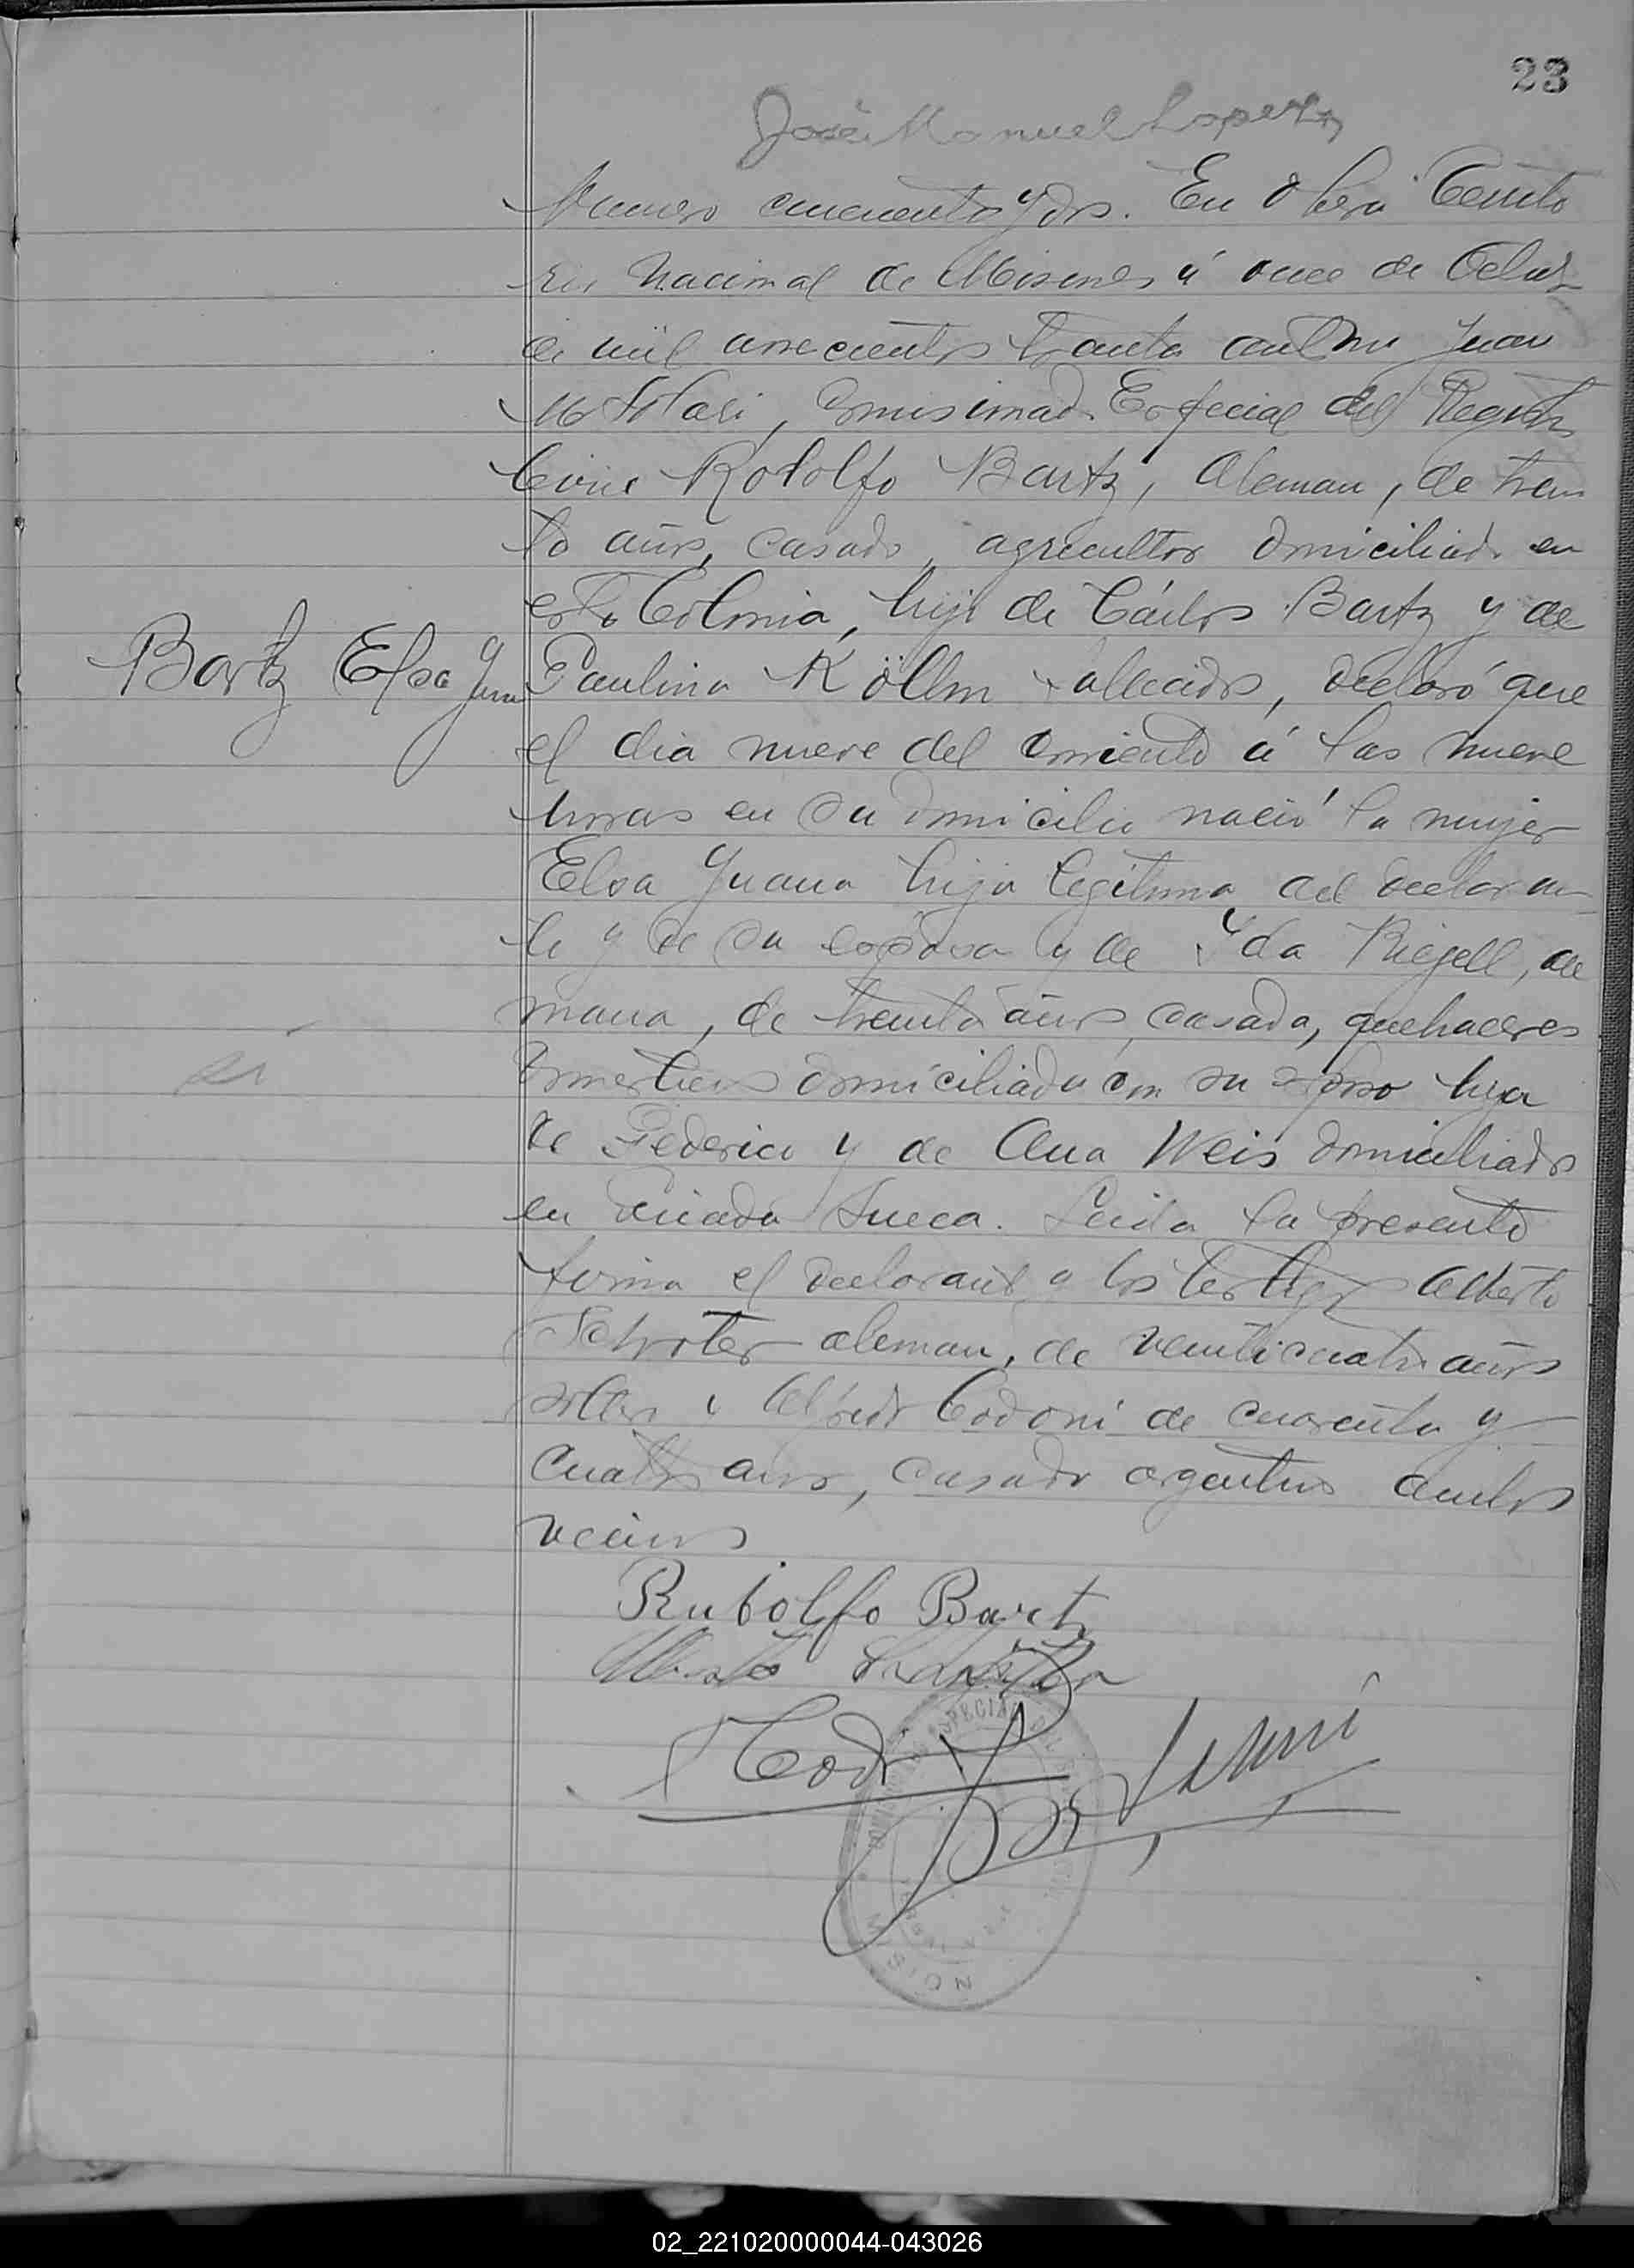 23
José Manuel Lopez
Numero cincuenta y dos. En Oberá Territo
rio Nacional de Misiones á once de Octubre
de mil novecientos treinta ante mi Juan
M Solari, Comisionado Especial del Registro
Civil Rodolfo Bartz, Aleman, de trein
ta años, casado, agricultor domiciliado en
esta Colonia, hijo de Cárlos Bartz y de
Bartz Elsa Juana
Paulina Köllm fallecidos, declaró que
el dia nueve del corriente á las nueve
horas en su domicilio nació la mujer
Elsa Juana hija legitima del declaran
te y de su esposa y de Yda Riegell, ale
mana, de treinta años, casada, quehaceres
domesticos domiciliada con su esposo hija
de Federico y de Ana Weis domiciliados
en Picada Sueca. Leida la presente
firma el declarante y los testigos Alberto
Schroter aleman, de veinticuatro años
soltero y Alfredo Codoni de cuarenta y
cuatro años, casado argentino ambos
vecinos
Rudolfo Bartz
Alberto
ESPECIAL
MISION
02_221020000044-043026